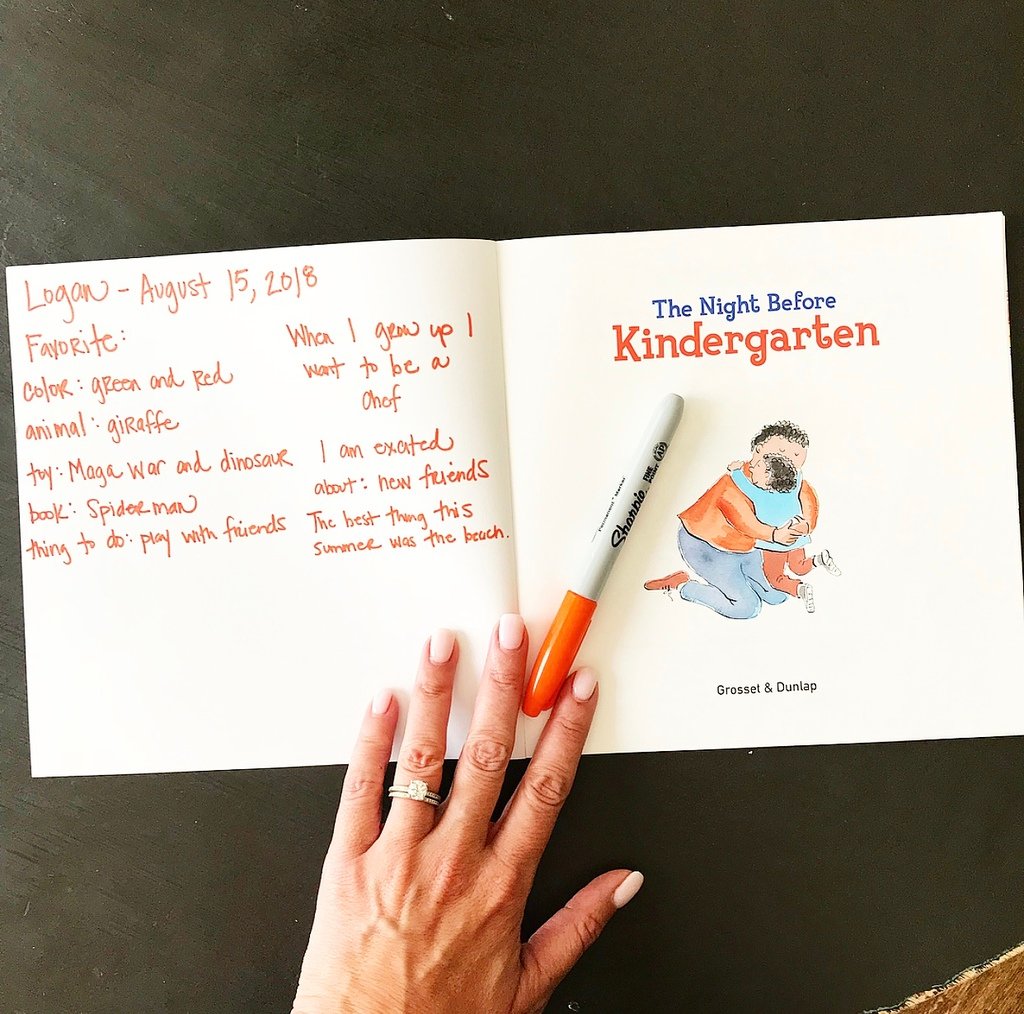 Logan - August 15, 2018
Favorite:
color: green and Red
animal: giraffe
toy: Maga War and dinosaur
book: Spiderman
thing to do: play with friends
When I grow up I
want to be a
Chef
I am excited
about: new friends
The best thing this
summer was the beach.
The Night Before
Kindergarten
Grosset & Dunlap
Permanent Marker
Sharpie
FINE POINT
AP